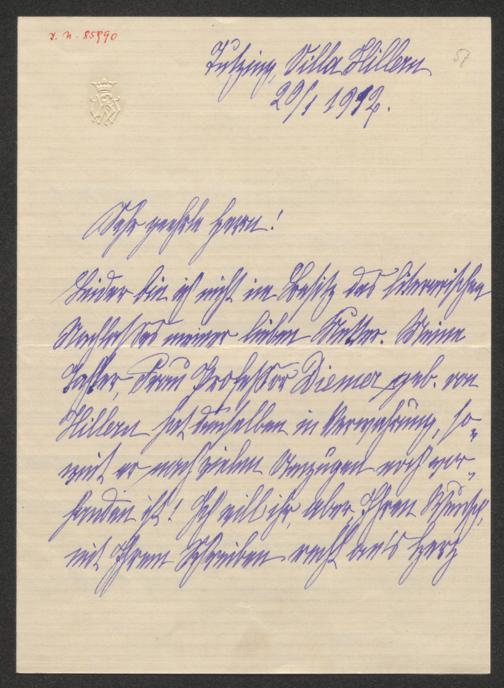 I. N. 85990
57
Tutzing, Villa Hillern
29/1 1912.
Sehr geehrte Herrn!
Leider bin ich nicht im Besitz des literarischen
Nachlasses meiner lieben Mutter. Meine
Tochter, Frau Professor Diemer geb. von
Hillern hat denselben in Verwahrung, so-
weit er nach vielen Umzügen noch vor-
handen ist! Ich will ihr aber Ihren Wunsch,
mit Ihrem Schreiben recht an's Herz